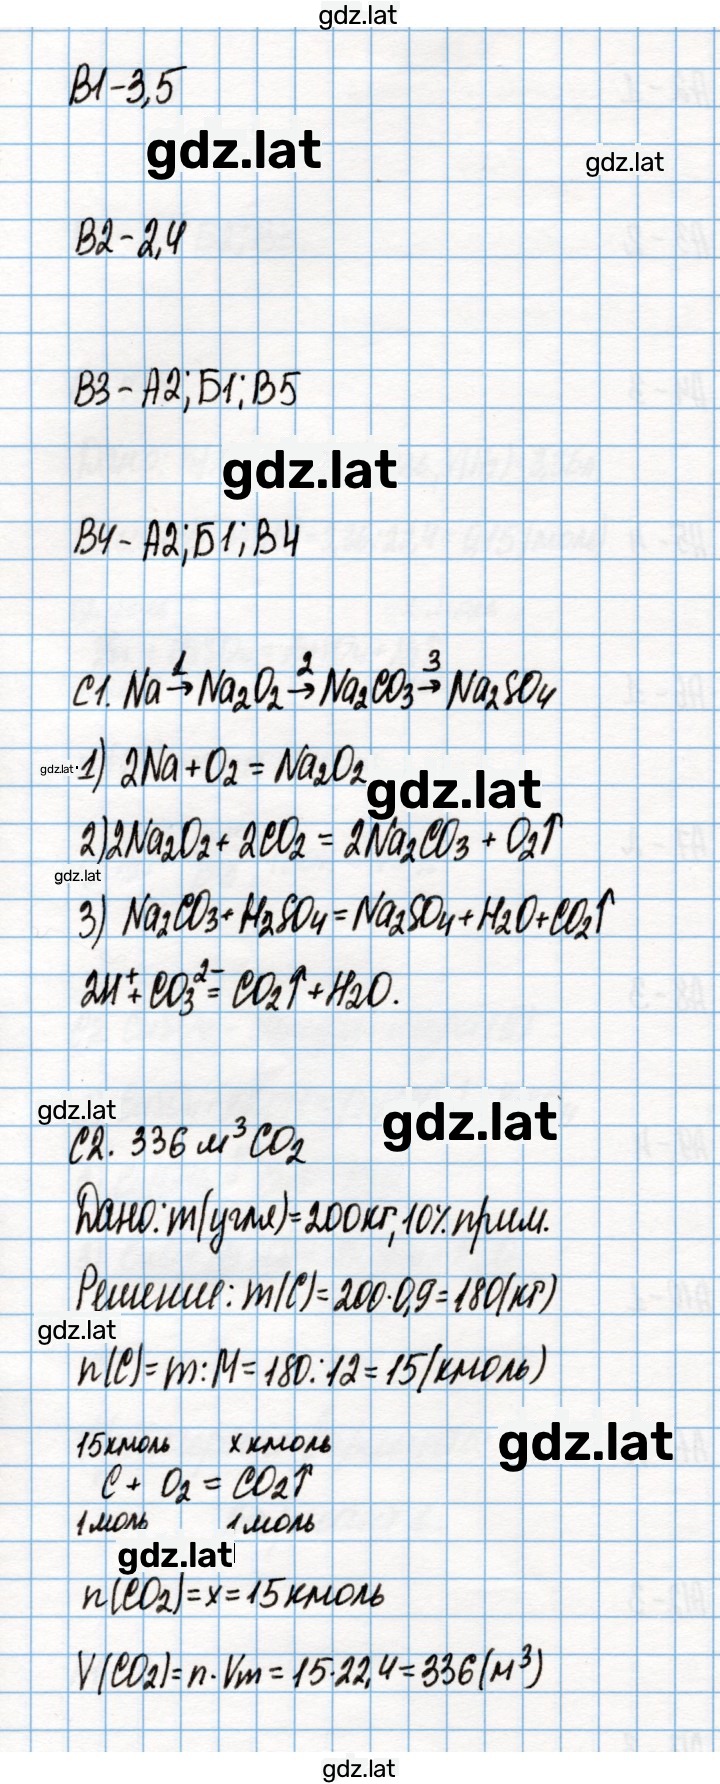 gdz.lat
В1-3,5
gdz.lat
gdz.lat
В2-2,4
В3-А2;Б1;В5
gdz.lat
В4-А2;Б1;В4
С1. Na →¹ Na₂O₂ →² Na₂CO₃ →³ Na₂SO₄
gdz.lat
1) 2Na+O₂=Na₂O₂
gdz.lat
2) 2Na₂O₂+2CO₂=2Na₂CO₃+O₂↑
gdz.lat
3) Na₂CO₃+H₂SO₄=Na₂SO₄+H₂O+CO₂↑
2H⁺+CO₃²⁻=CO₂↑+H₂O.
gdz.lat
gdz.lat
С2. 336 м³ CO₂
Дано: m(угля)=200кг, 10% прим.
Решение: m(C)=200·0,9=180(кг)
gdz.lat
n(C)=m:M=180:12=15(кмоль)
15кмоль х кмоль
gdz.lat
C+O₂=CO₂↑
1моль 1моль
gdz.lat
n(CO₂)=x=15кмоль
V(CO₂)=n·Vm=15·22,4=336(м³)
gdz.lat